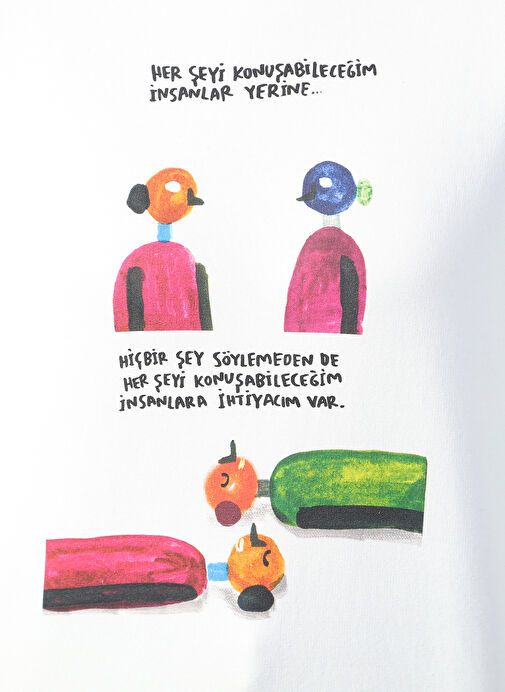 HER ŞEYİ KONUŞABİLECEĞİM
İNSANLAR YERİNE...
HİÇBİR ŞEY SÖYLEMEDEN DE
HER ŞEYİ KONUŞABİLECEĞİM
İNSANLARA İHTİYACIM VAR.